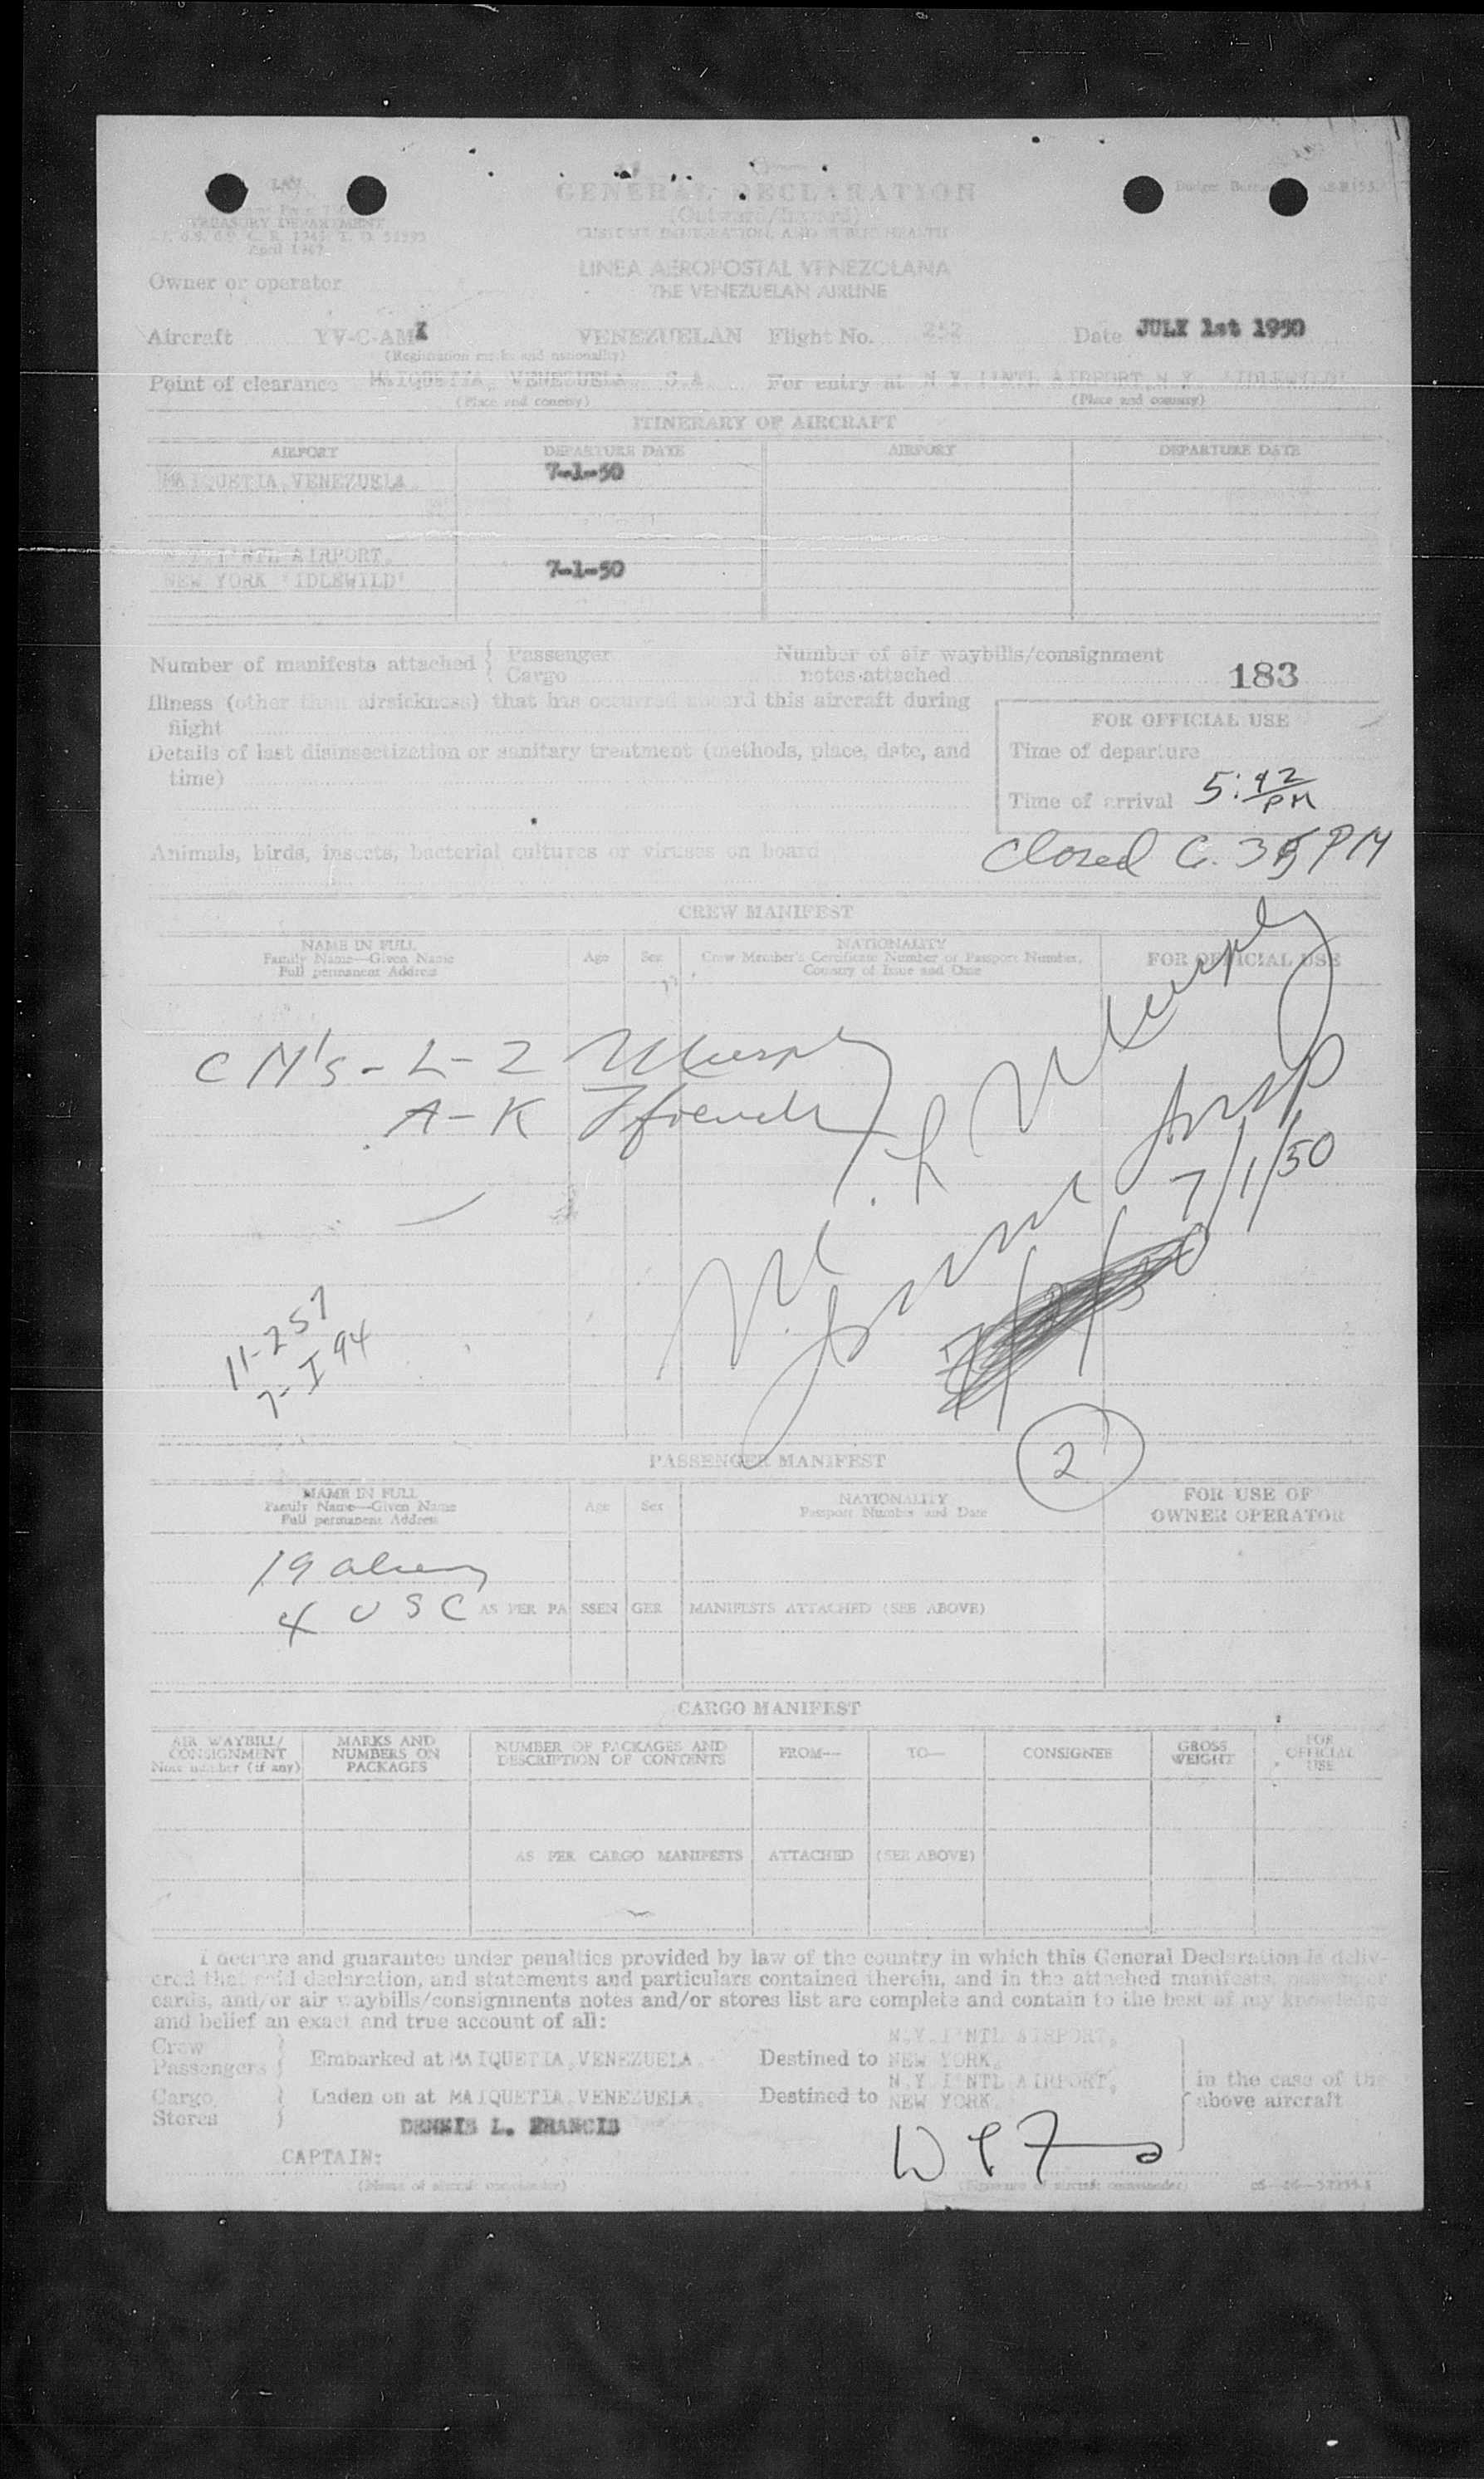 GENERAL DECLARATION
(Outward/Inward)
TREASURY DEPARTMENT
CUSTOMS, IMMIGRATION, AND PUBLIC HEALTH
April 1947
LINEA AEROPOSTAL VENEZOLANA
THE VENEZUELAN AIRLINE
Owner or operator
Aircraft YV-C-AMX VENEZUELAN Flight No. 252 Date JULY 1st 1950
(Registration marks and nationality)
Point of clearance MAIQUETIA, VENEZUELA S.A. For entry at N.Y. I'NTL AIRPORT, N.Y. 'IDLEWILD'
(Place and country) (Place and country)
ITINERARY OF AIRCRAFT
AIRPORT DEPARTURE DATE AIRPORT DEPARTURE DATE
MAIQUETIA, VENEZUELA. 7-1-50
I'NTL AIRPORT,
NEW YORK 'IDLEWILD' 7-1-50
Number of manifests attached { Passenger
Cargo
Number of air waybills/consignment
notes attached
183
Illness (other than airsickness) that has occurred aboard this aircraft during
flight
Details of last disinsectization or sanitary treatment (methods, place, date, and
time)
FOR OFFICIAL USE
Time of departure
Time of arrival 5:42 PM
Closed 6.35 PM
Animals, birds, insects, bacterial cultures or viruses on board
CREW MANIFEST
NAME IN FULL
Family Name—Given Name
Full permanent Address
Age Sex
NATIONALITY
Crew Member's Certificate Number or Passport Number,
Country of Issue and Date
FOR OFFICIAL USE
CM's - L-Z Murphy
A-K
Murphy
7/1/50
11-257
7-I 94
2
PASSENGER MANIFEST
NAME IN FULL
Family Name—Given Name
Full permanent Address
Age Sex
NATIONALITY
Passport Number and Date
FOR USE OF
OWNER OPERATOR
19 aliens
4 USC AS PER PASSENGER MANIFESTS ATTACHED (SEE ABOVE)
CARGO MANIFEST
AIR WAYBILL/
CONSIGNMENT
Note number (if any)
MARKS AND
NUMBERS ON
PACKAGES
NUMBER OF PACKAGES AND
DESCRIPTION OF CONTENTS
FROM—
TO—
CONSIGNEE
GROSS
WEIGHT
FOR
OFFICIAL
USE
AS PER CARGO MANIFESTS ATTACHED (SEE ABOVE)
I declare and guarantee under penalties provided by law of the country in which this General Declaration is deliv-
ered that said declaration, and statements and particulars contained therein, and in the attached manifests,
cards, and/or air waybills/consignments notes and/or stores list are complete and contain to the best of my knowledge
and belief an exact and true account of all:
Crew
Passengers } Embarked at MAIQUETIA, VENEZUELA. Destined to N.Y. I'NTL AIRPORT, NEW YORK.
Cargo
Stores } Laden on at MAIQUETIA, VENEZUELA. Destined to N.Y. I'NTL AIRPORT, NEW YORK.
in the case of the
above aircraft
DENNIS L. FRANCIS
CAPTAIN:
(Name of aircraft commander) (Signature of aircraft commander)